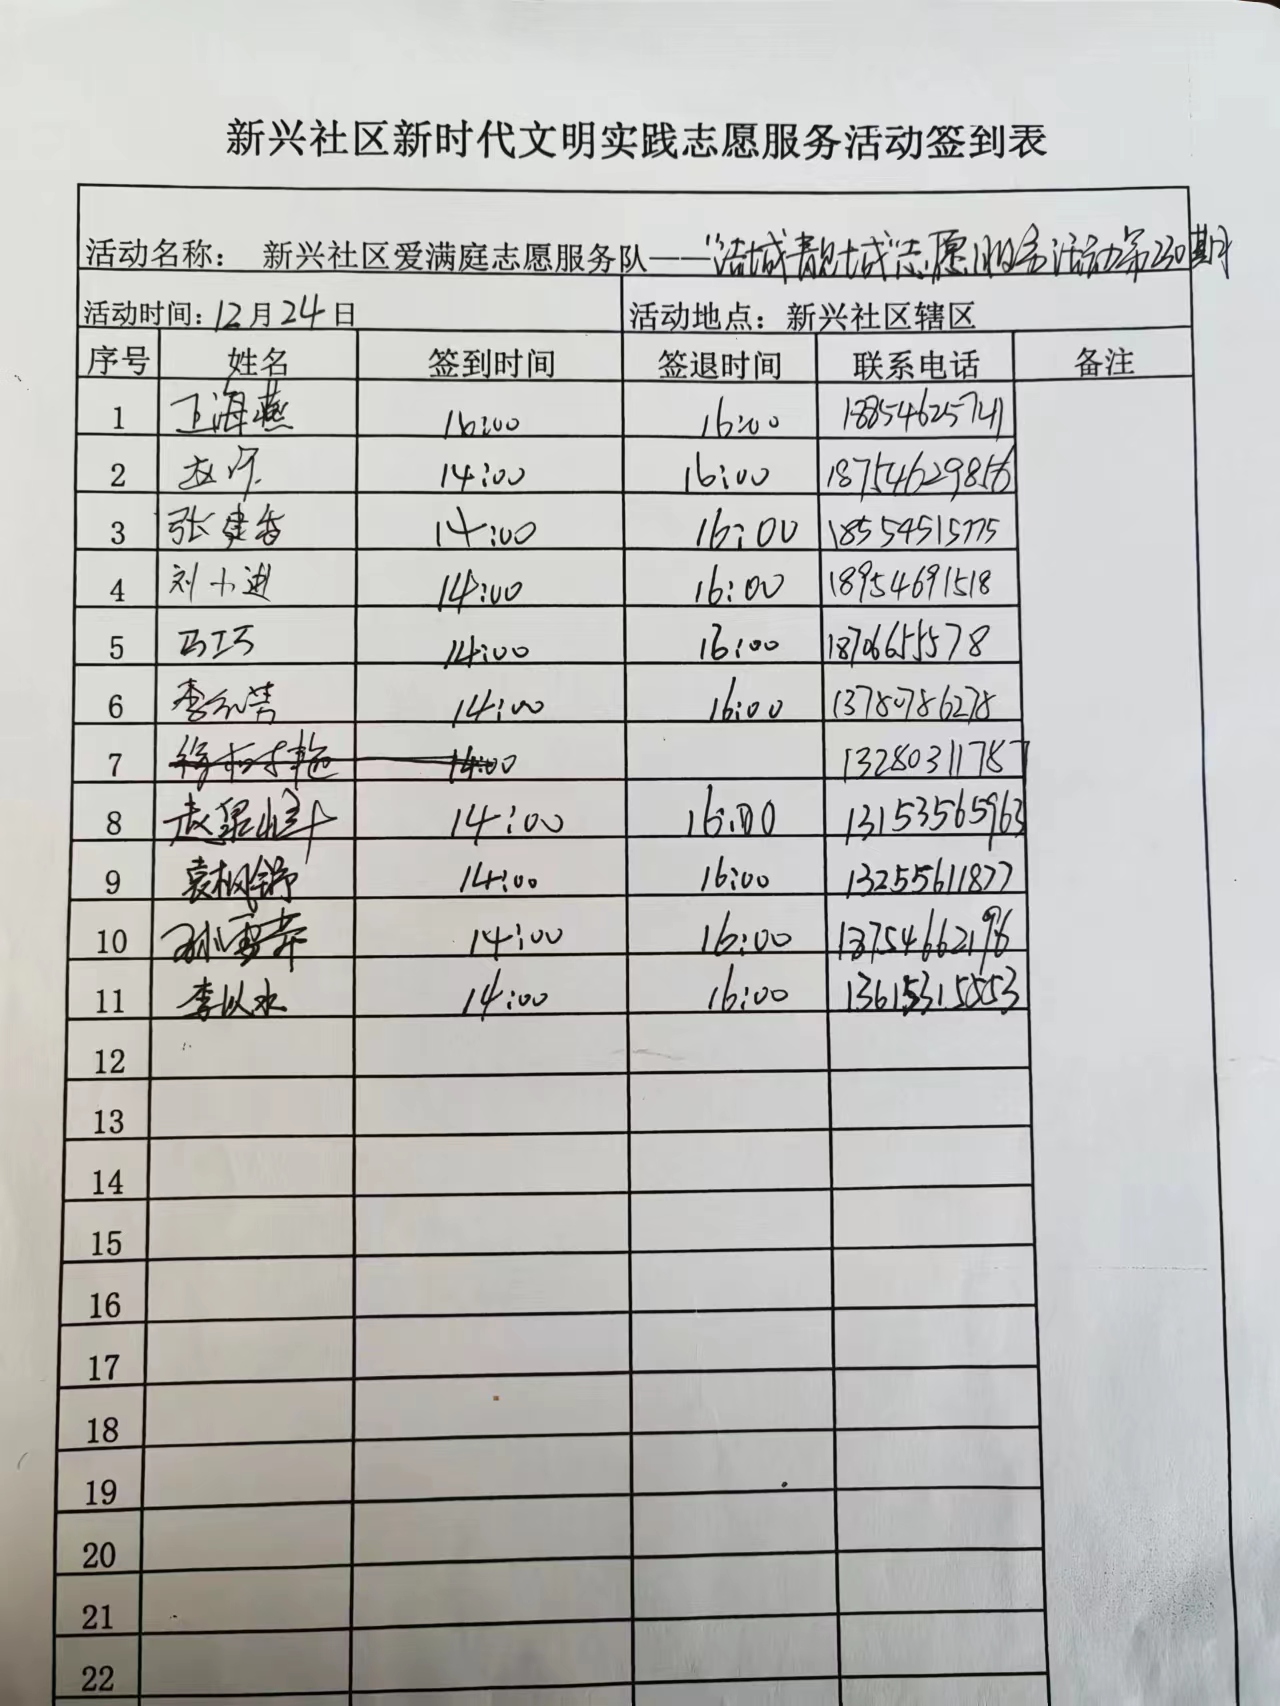 新兴社区新时代文明实践志愿服务活动签到表
活动名称： 新兴社区爱满庭志愿服务队——“洁城靓城”志愿服务活动第230期
活动时间：12月24日 活动地点：新兴社区辖区
序号 姓名 签到时间 签退时间 联系电话 备注
1 王海燕 16:00 16:00 18854625741
2 16:00 14:00 18754629856
3 张建香 14:00 16:00 18554515775
4 刘小进 14:00 16:00 18954691518
5 马工巧 14:00 16:00 1870665578
6 14:00 16:00 13780786278
7 14:00 13280311787
8 14:00 16:00 13153565963
9 袁枫锦 14:00 16:00 13255611877
10 14:00 16:00 13754662196
11 李以水 14:00 16:00
12
13
14
15
16
17
18
19
20
21
22